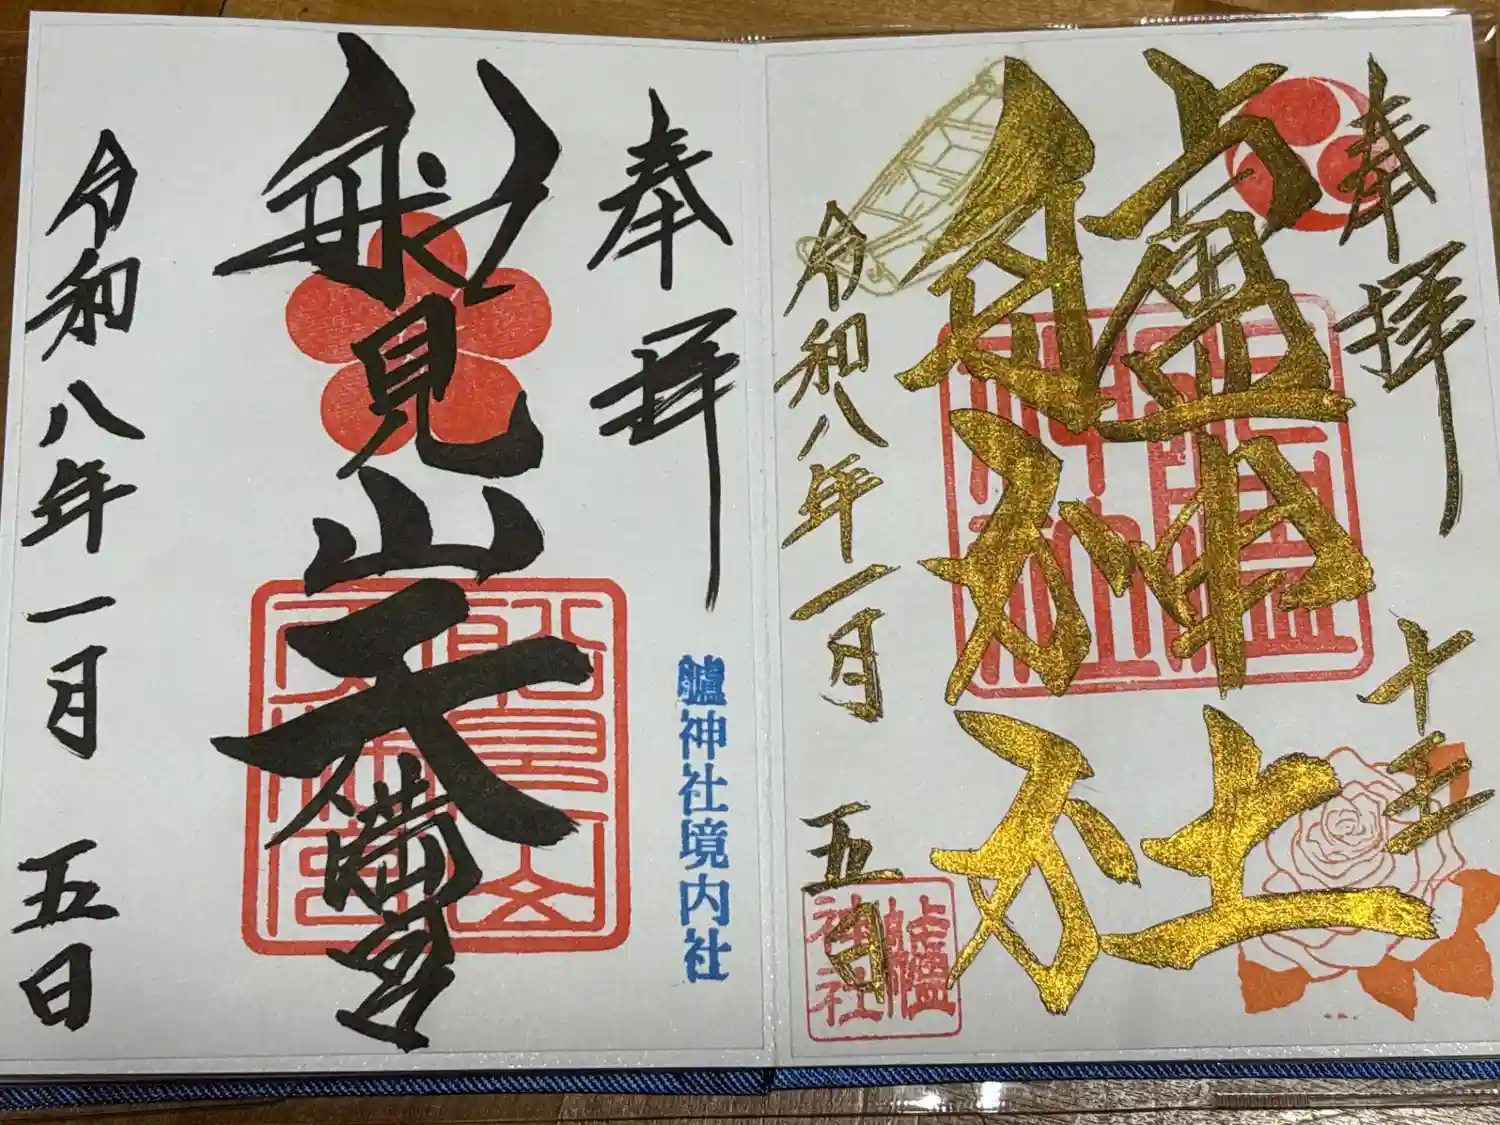 奉拝
艫神社
令和八年一月五日
艫神社
奉拝
艫神社境内社
船見山天満宮
令和八年一月五日